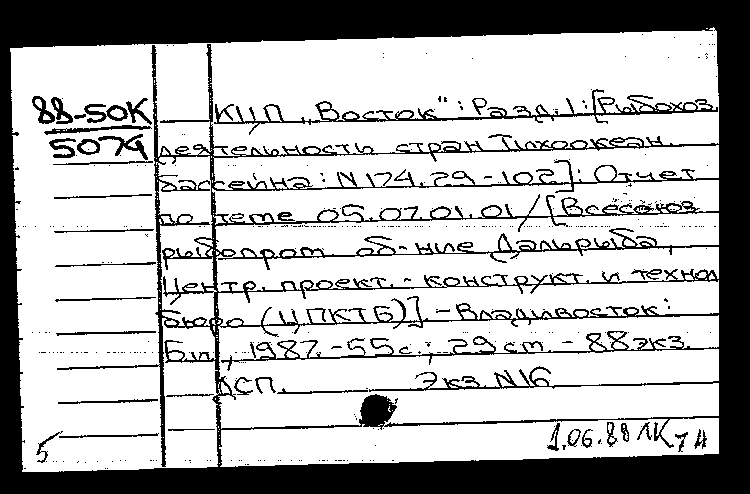 88-50К
5074
КЦП „Восток“: Разд. 1: [Рыбохоз.
деятельность стран Тихоокеан.
бассейна: N174.29-102]: Отчет
по теме 05.07.01.01/[Всесоюз.
рыбопром. об-ние Дальрыба,
Центр. проект.-конструкт. и технол.
бюро (ЦПКТБ)].-Владивосток:
Б.и., 1987.-55с.; 29см.-88экз.
ДСП. Экз. N16
5 1.06.88